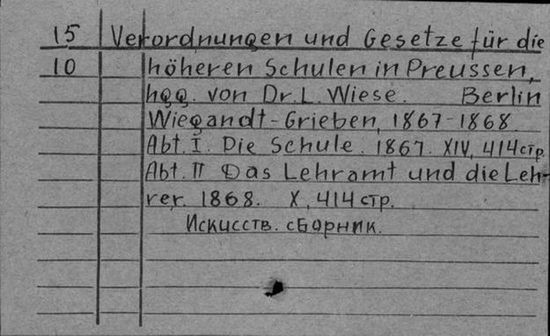 15 Verordnungen und Gesetze für die
10 höheren Schulen in Preussen,
hgg. von Dr. L. Wiese. Berlin
Wiegandt-Grieben, 1867-1868.
Abt. I. Die Schule. 1867. XIV, 414 стр.
Abt. II Das Lehramt und die Leh-
rer. 1868. X, 414 стр.
Искисств. сборник.